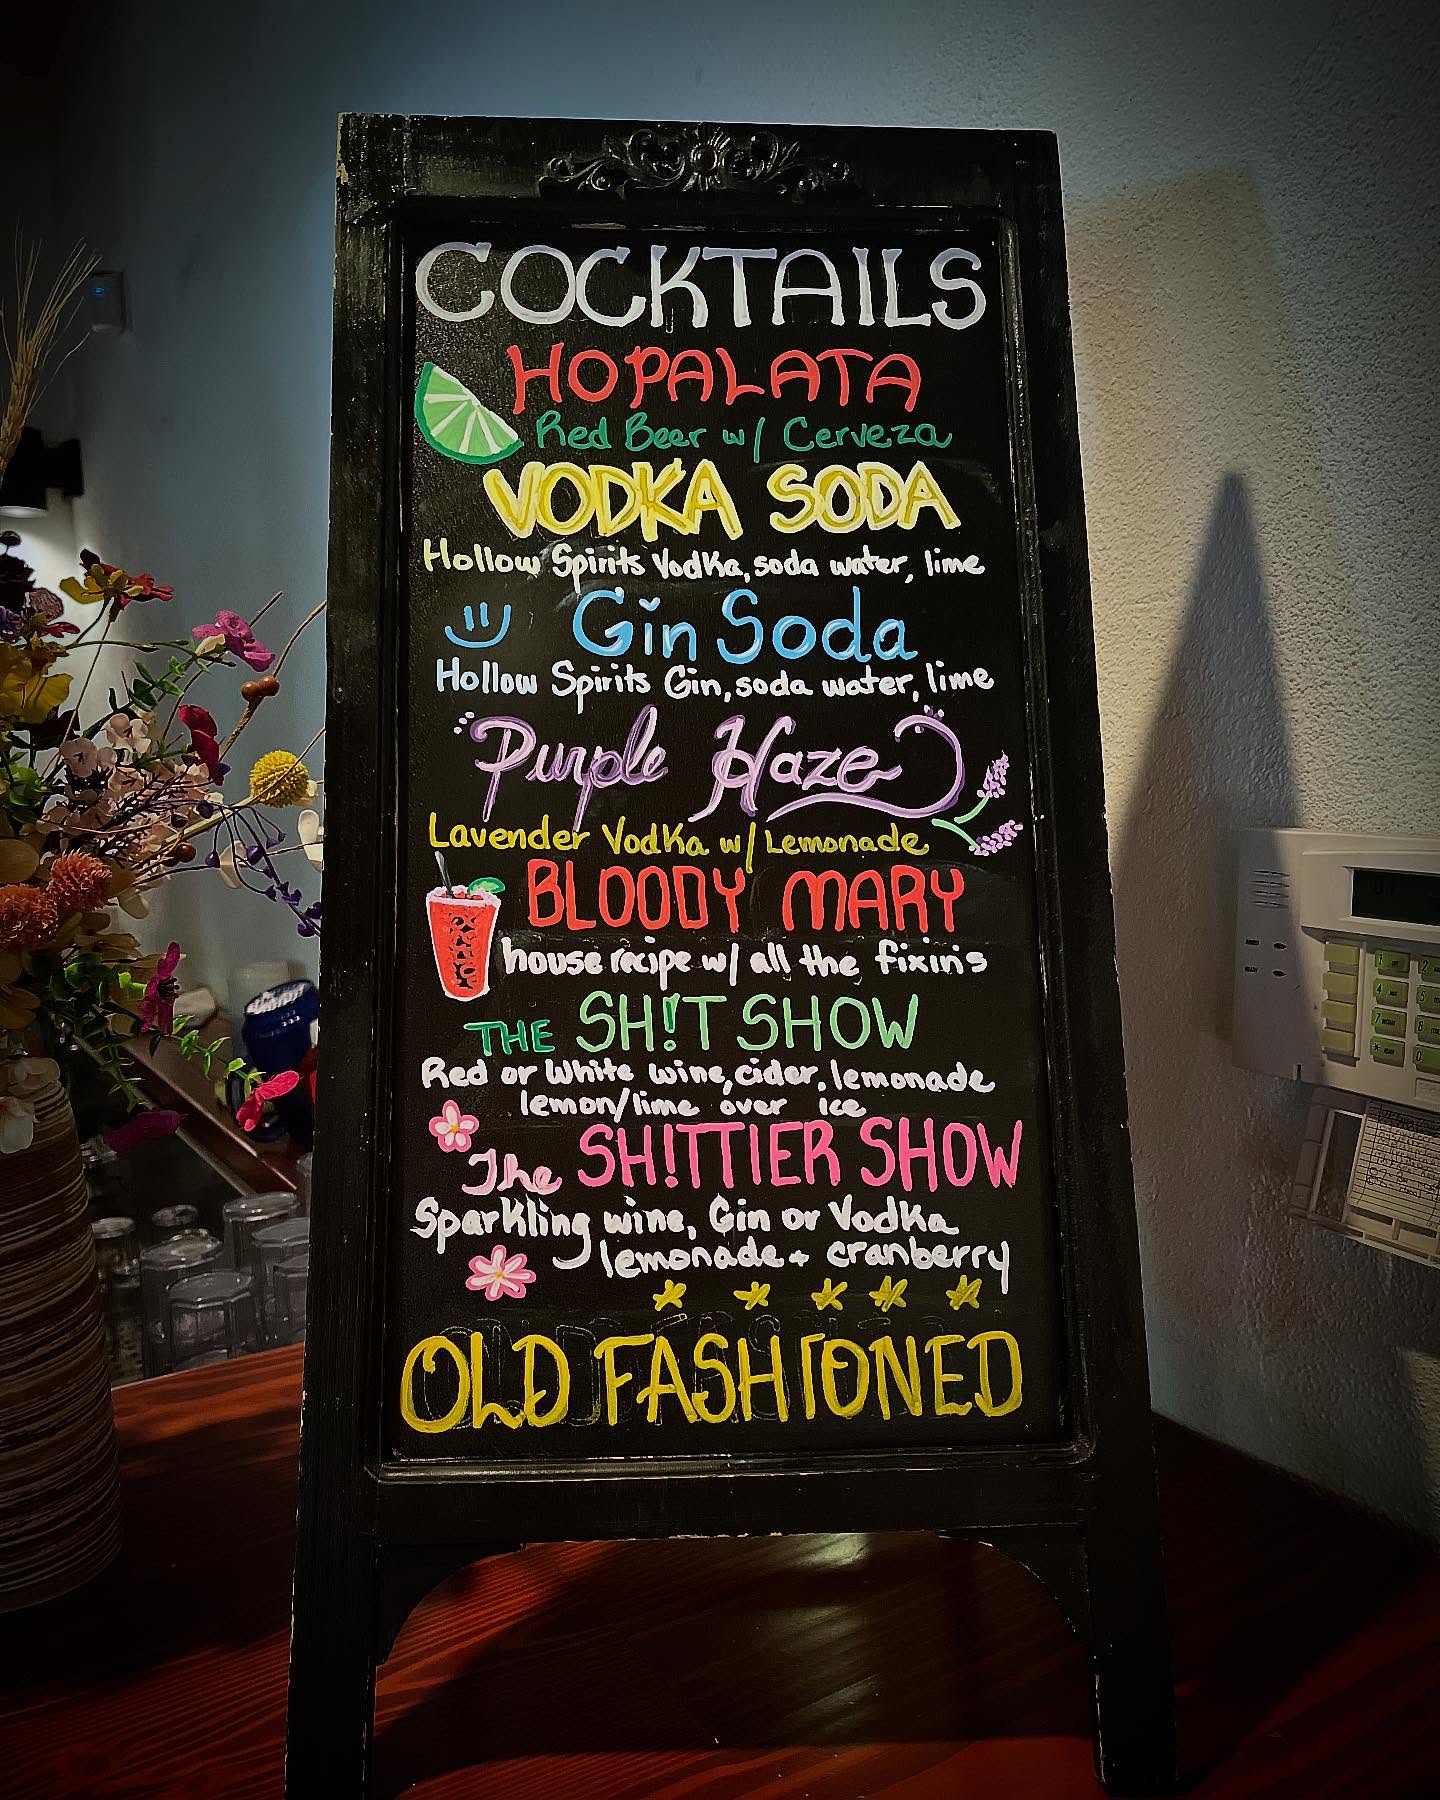 COCKTAILS
HOPALATA
Red Beer w/ Cerveza
VODKA SODA
Hollow Spirits Vodka, soda water, lime
Gin Soda
Hollow Spirits Gin, soda water, lime
Purple Haze
Lavender Vodka w/ Lemonade
BLOODY MARY
house recipe w/ all the fixin's
THE SH!T SHOW
Red or White wine, cider, lemonade
lemon/lime over ice
The SH!TTIER SHOW
Sparkling wine, Gin or Vodka
lemonade + cranberry
OLD FASHIONED